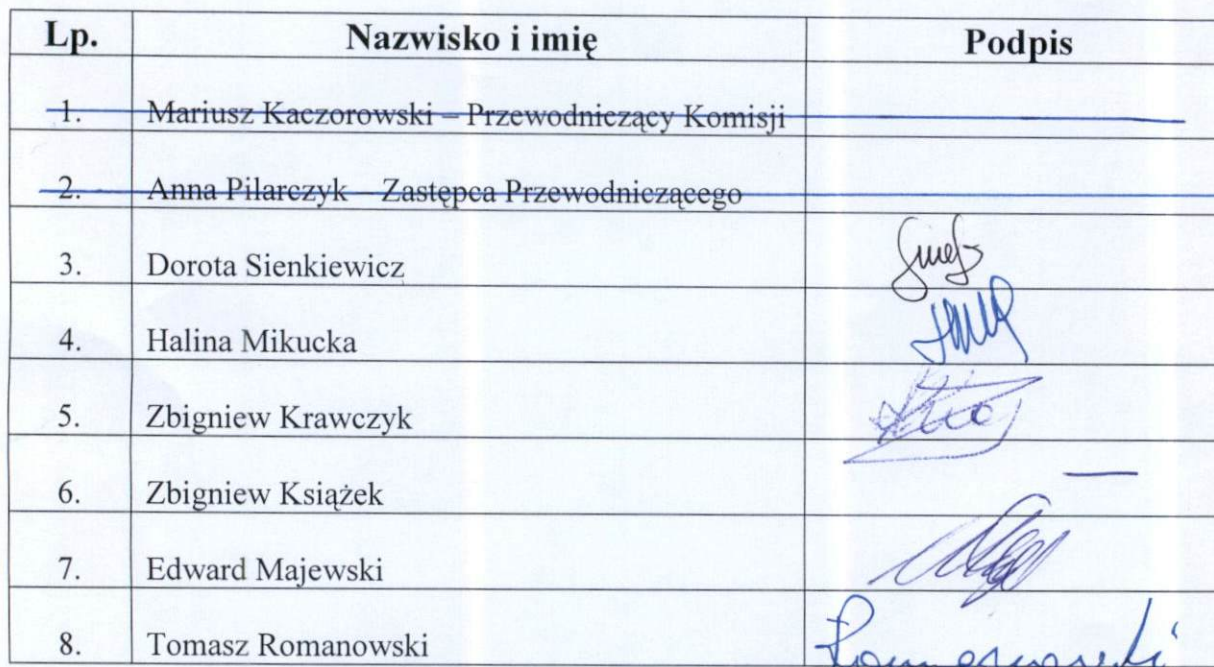 Lp. Nazwisko i imię Podpis
1. Mariusz Kaczorowski – Przewodniczący Komisji
2. Anna Pilarczyk – Zastępca Przewodniczącego
3. Dorota Sienkiewicz
4. Halina Mikucka
5. Zbigniew Krawczyk
6. Zbigniew Książek —
7. Edward Majewski
8. Tomasz Romanowski